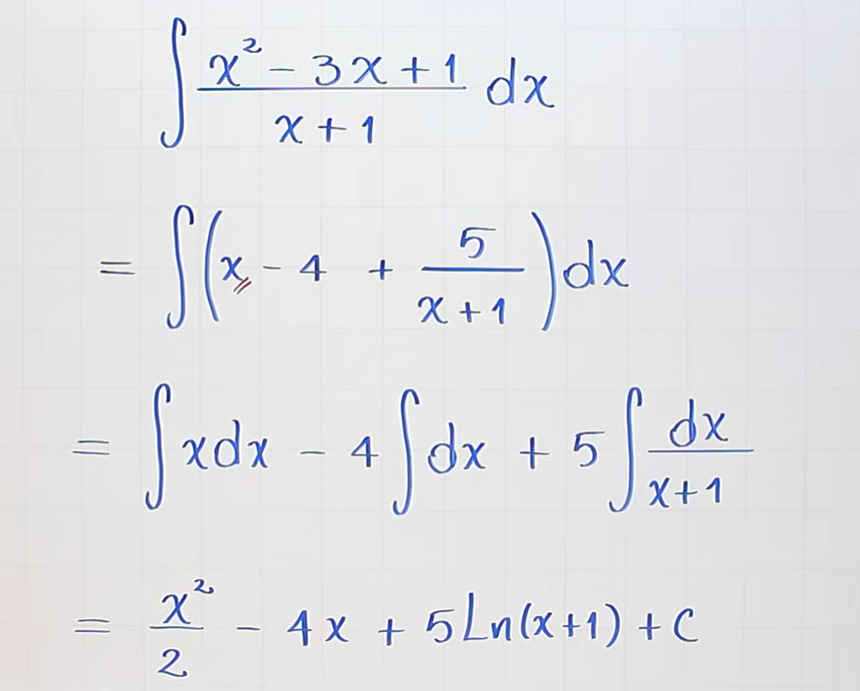 ∫ (x² - 3x + 1)/(x + 1) dx
= ∫ (x - 4 + 5/(x + 1)) dx
= ∫ xdx - 4 ∫ dx + 5 ∫ dx/(x+1)
= x²/2 - 4x + 5Ln(x+1) + C